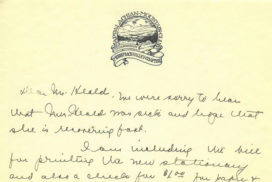 APPALACHIAN MOUNTAIN
Dear Mr. Heald - We were sorry to hear
that Mrs. Heald was sick and hope that
she is recovering fast.
I am including the bill
for printing the new stationary
and also a check for $1.00 for paper &